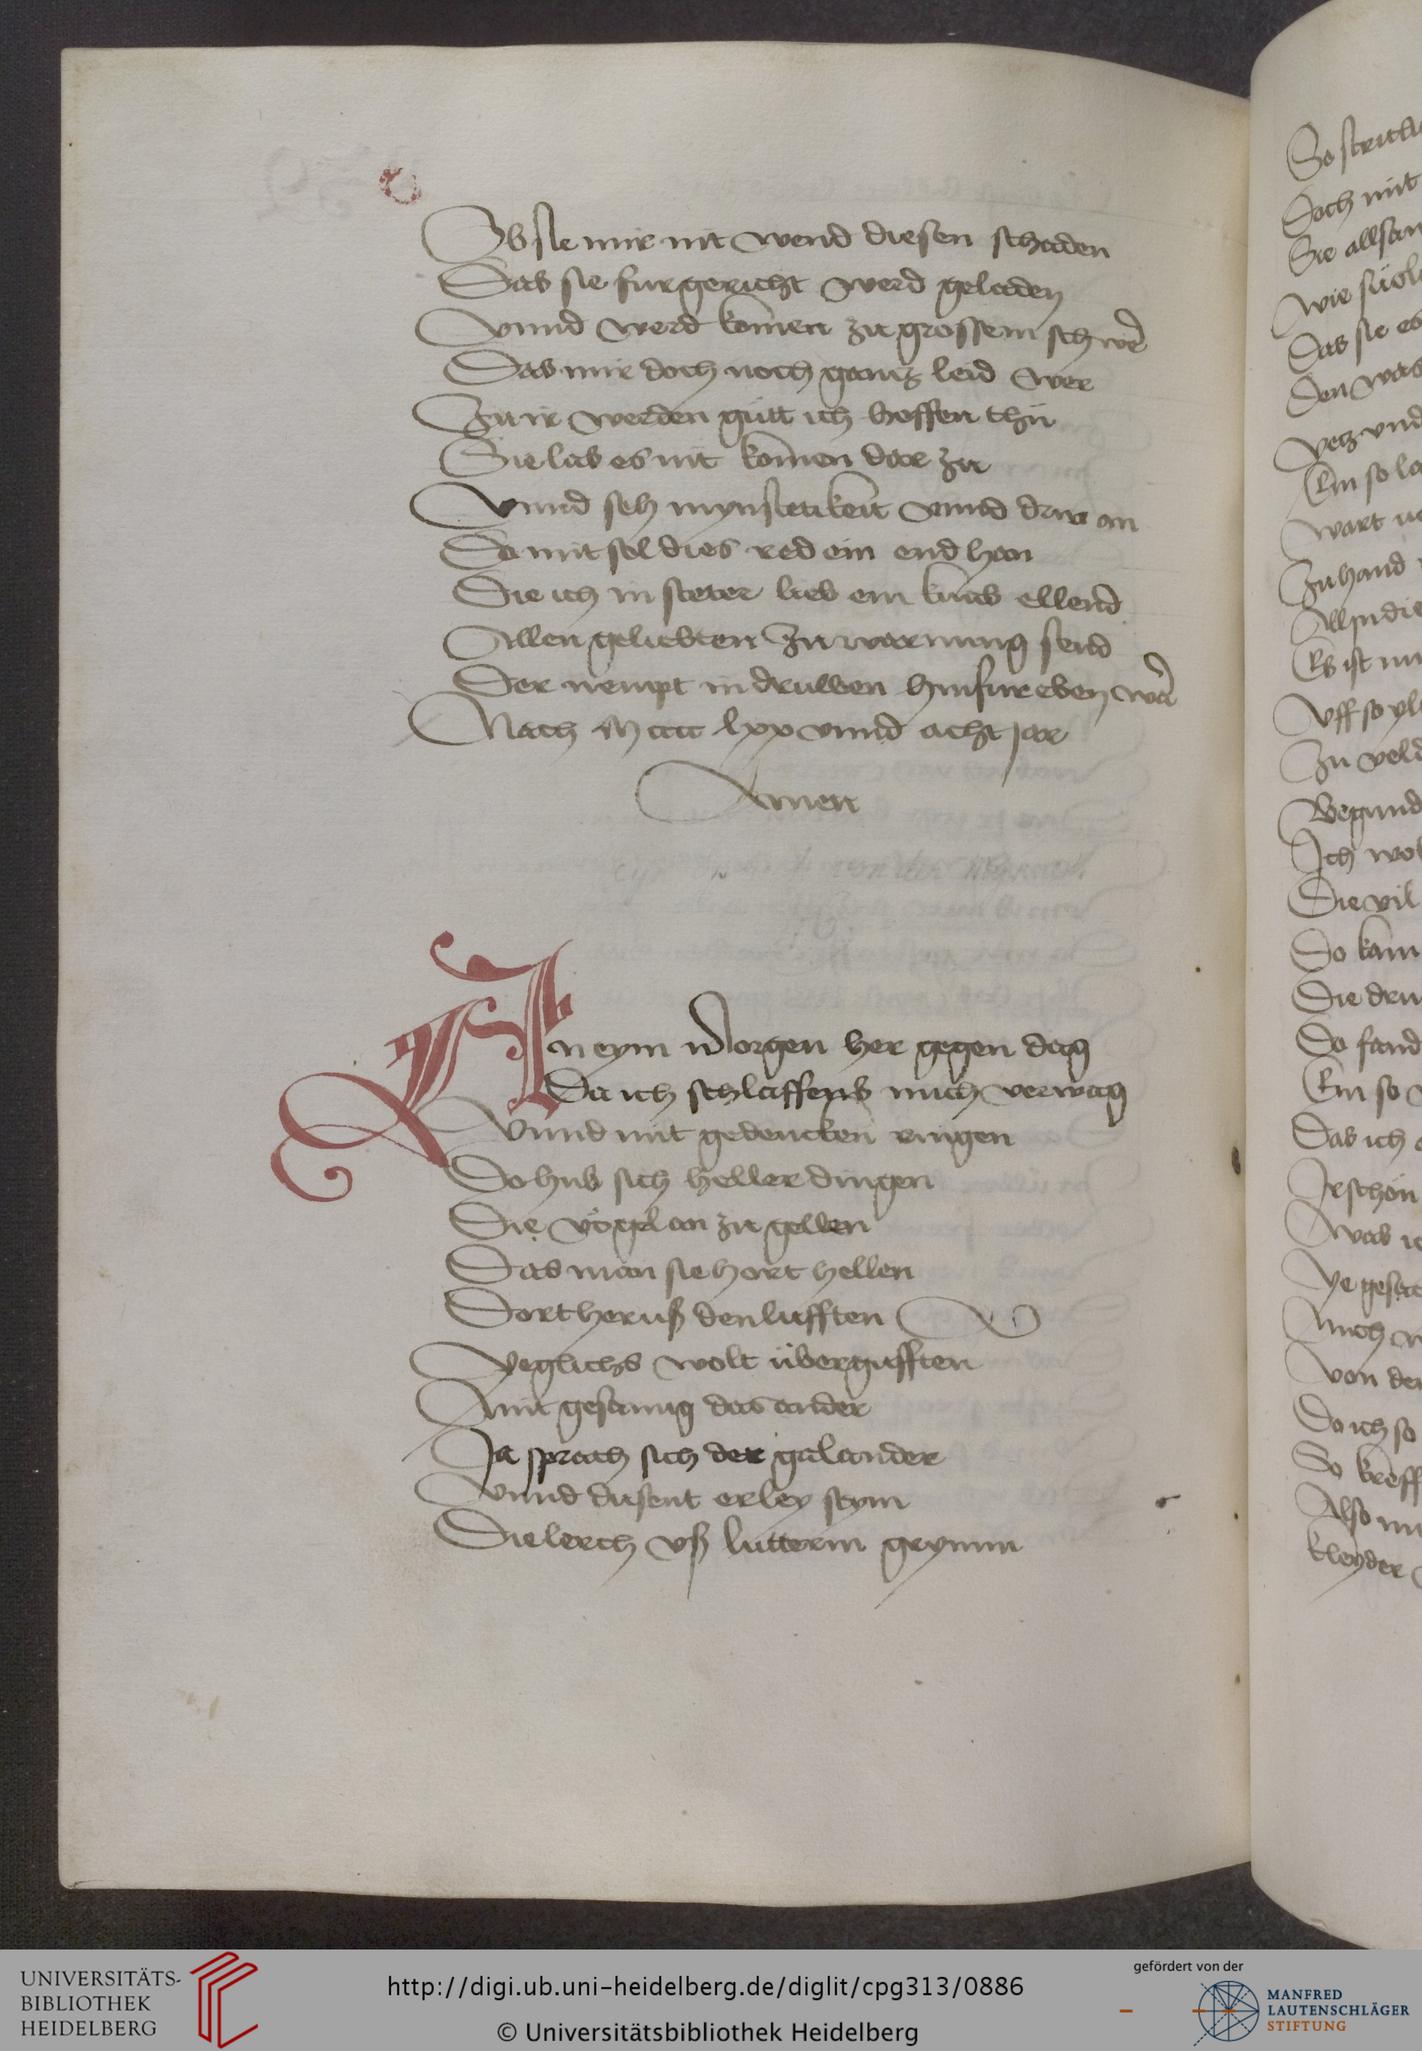 Ob sie mir nit wend diesen schaden
Das sie fur gericht werd geladen
Vnnd werd komen zu grossem schwer
Das mir doch noch gantz leid wer
Zu ir werden gutt ich hoffen thu
Sie las es nit komen dar zu
Vnnd seh myn stetikeit vnnd druw an
Da mit sol dies red ein end han
Die ich in steter lieb ein knab ellend
Allen geliebten zu warnung send
Der nempt in druwen hinfur eben war
Nach M cccc lxx vnnd acht jar
Amen
An eym Morgen her gegen dag
Da ich schlaffens mich verwag
Vnnd mit gedencken ringen
Do hub sich heller dingen
Die vögel an zu gellen
Das man sie hort hellen
Dort heruß den lufften
Yeglichs wolt übergufften
Mit gesanng das ander
Ja sprach sich der galander
Vnnd dusent erley stym
Die lerch vß lutterm grymm
So
Doch mit
Sie allsam
Wie
Das sie es
Den was
Yetz vnd
Ein so
Wart
Zu hand
All in die
Es ist
Vff so
Zu veld
Begund
Ich wol
Die vil
Do kam
Die
Do fand
Ein so
Das ich
Ir schön
Was
Ye
Auch
Von der
Do ich so
So
Also
Kleyder
UNIVERSITÄTS-
BIBLIOTHEK
HEIDELBERG
http://digi.ub.uni-heidelberg.de/diglit/cpg313/0886
© Universitätsbibliothek Heidelberg
gefördert von der
MANFRED
LAUTENSCHLÄGER
STIFTUNG